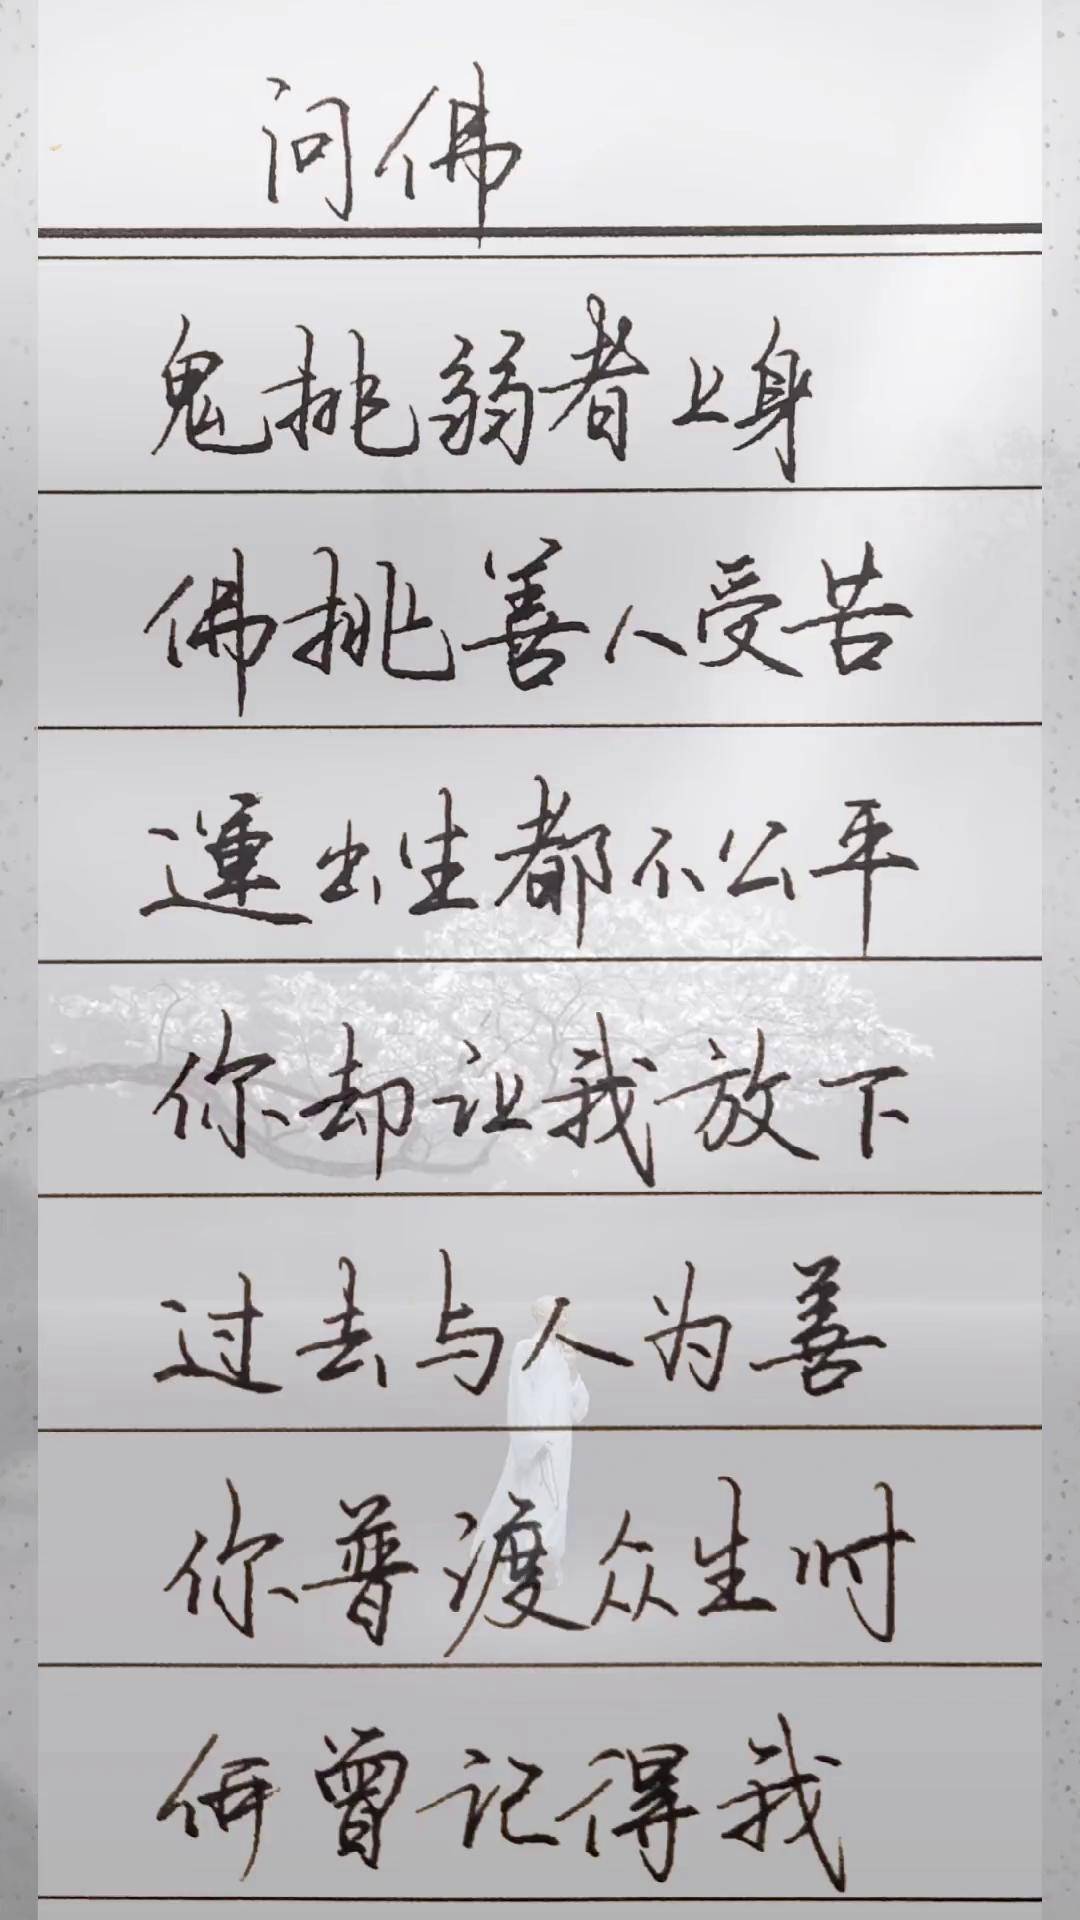 问佛
鬼挑弱者上身
佛挑善人受苦
連出生都不公平
你却让我放下
过去与人为善
你普渡众生时
何曾记得我